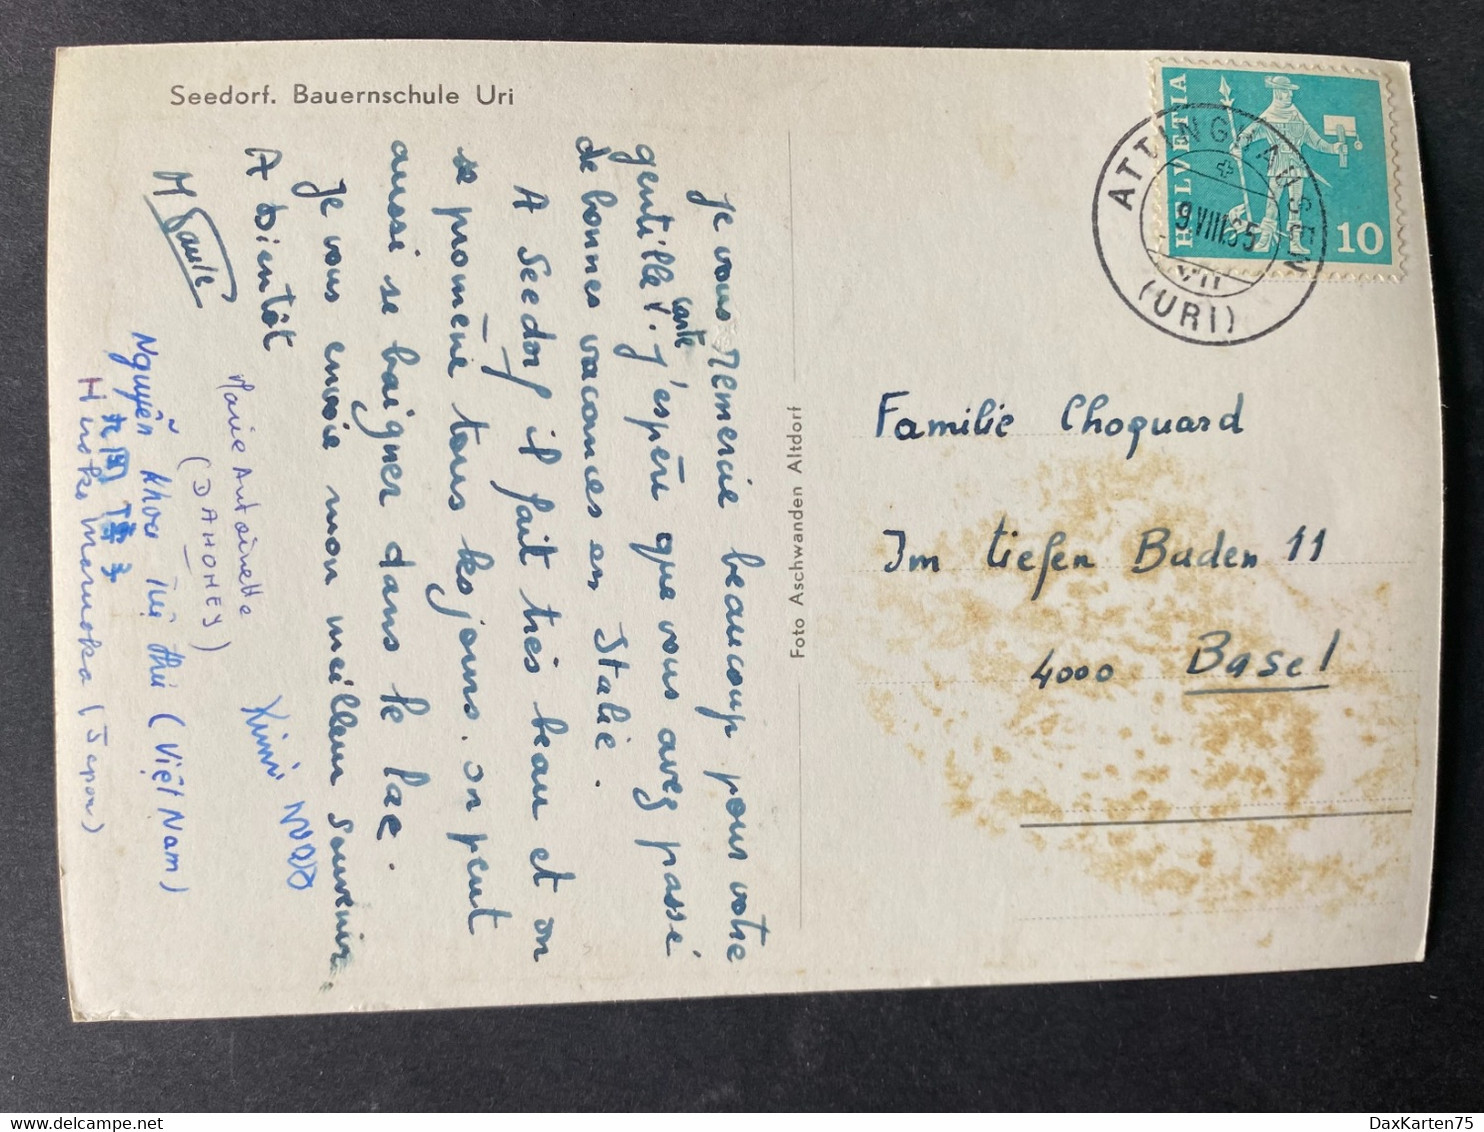 Seedorf. Bauernschule Uri
Je vous remercie beaucoup pour votre
gentille carte. J'espère que vous avez passé
de bonnes vacances en Italie.
A Seedorf il fait très beau et on
se promène tous les jours. on peut
aussi se baigner dans le lac.
Je vous envoie mon meilleur souvenir
A bientôt
M Paule
Marie Antoinette
(DAHOMEY)
Nguyễn Khoa Tú (Việt Nam)
Hiroko (Japon)
Foto Aschwanden Altdorf
HELVETIA
10
ATTINGHAUSEN
9.VIII.65
VII
(URI)
Familie Choquard
Im tiefen Buden 11
4000 Basel
DaxKarten75
delcampe.net